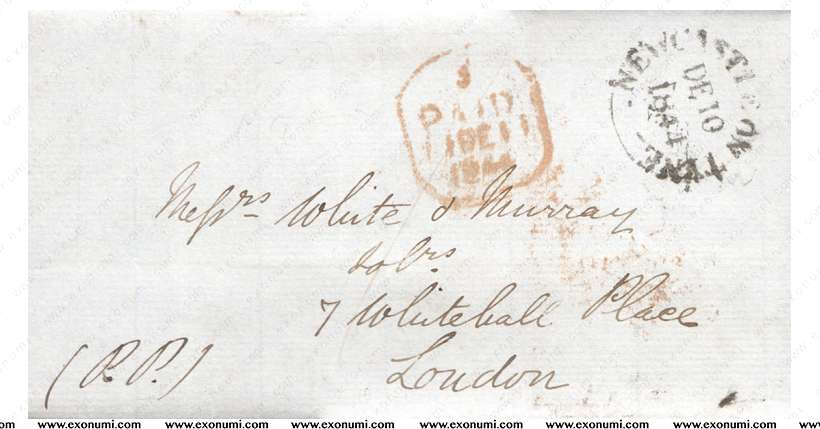 NEWCASTLE ON TYNE
DE 10
1844
PAID
11 DE 11
1844
Messrs White & Murray
Solrs
7 Whitehall Place
London
(P.P.)
www.exonumi.com www.exonumi.com www.exonumi.com www.exonumi.com www.exonumi.com www.exonumi.com